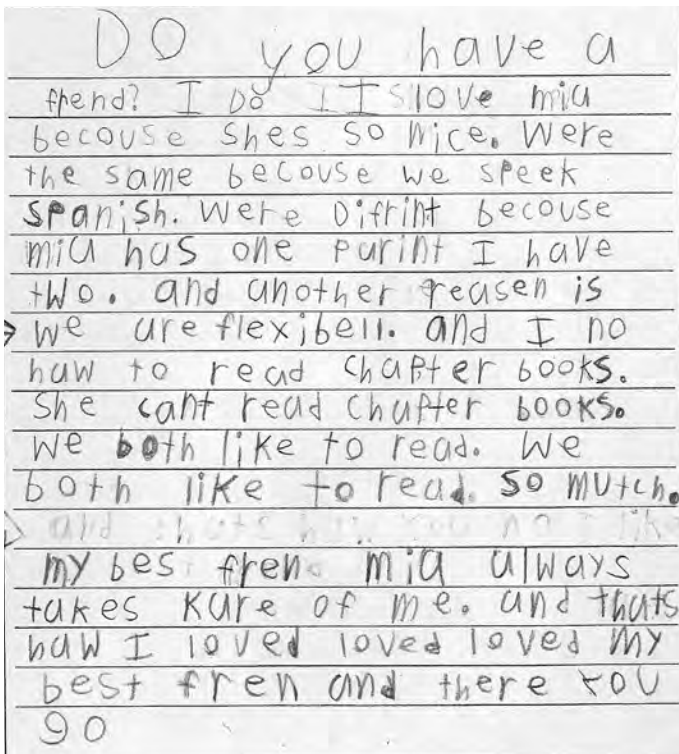 DO you have a
frend? I Do I I S love mia
becouse shes so nice. Were
the same becouse we speek
spanish. Were Difrint becouse
mia has one parint I have
two. and another reasen is
we are flexibell. and I no
haw to read chapter books.
She cant read chapter books.
we both like to read. We
both like to read. so mutch.
and thats haw you no I like
my bes fren. mia always
takes Kare of me. and thats
haw I loved loved loved my
best fren and there you
go